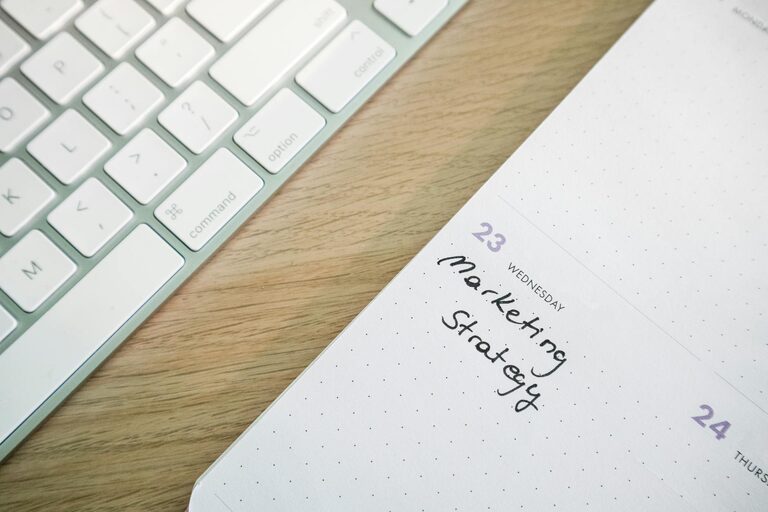 shift
P
: ;
^ control
O
L
? /
⌥ option
> .
K
< ,
⌘ command
M
MONDAY
23
WEDNESDAY
Marketing
Strategy
24
THURS